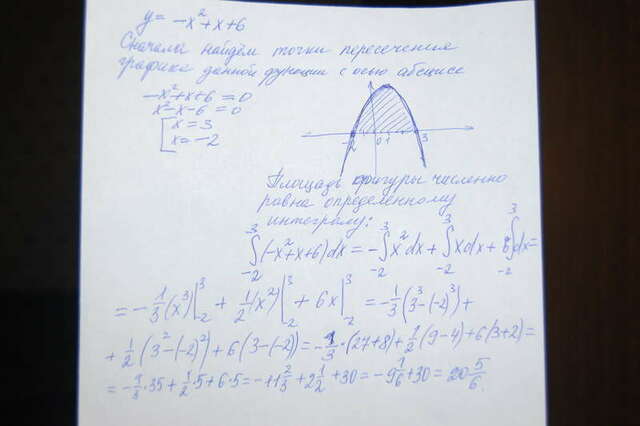 y = -x² + x + 6
Сначала найдём точки пересечения
графика данной функции с осью абсцисс
-x² + x + 6 = 0
x² - x - 6 = 0
[ x = 3
x = -2
-2 0 1 3
Площадь фигуры численно
равна определенному
интегралу:
∫₋₂³ (-x² + x + 6) dx = -∫₋₂³ x² dx + ∫₋₂³ x dx + 6 ∫₋₂³ dx =
= -1/3 (x³) |₋₂³ + 1/2 (x²) |₋₂³ + 6x |₋₂³ = -1/3 (3³ - (-2)³) +
+ 1/2 (3² - (-2)²) + 6 (3 - (-2)) = -1/3 · (27 + 8) + 1/2 (9 - 4) + 6 (3 + 2) =
= -1/3 · 35 + 1/2 · 5 + 6 · 5 = -11 2/3 + 2 1/2 + 30 = -9 1/6 + 30 = 20 5/6.